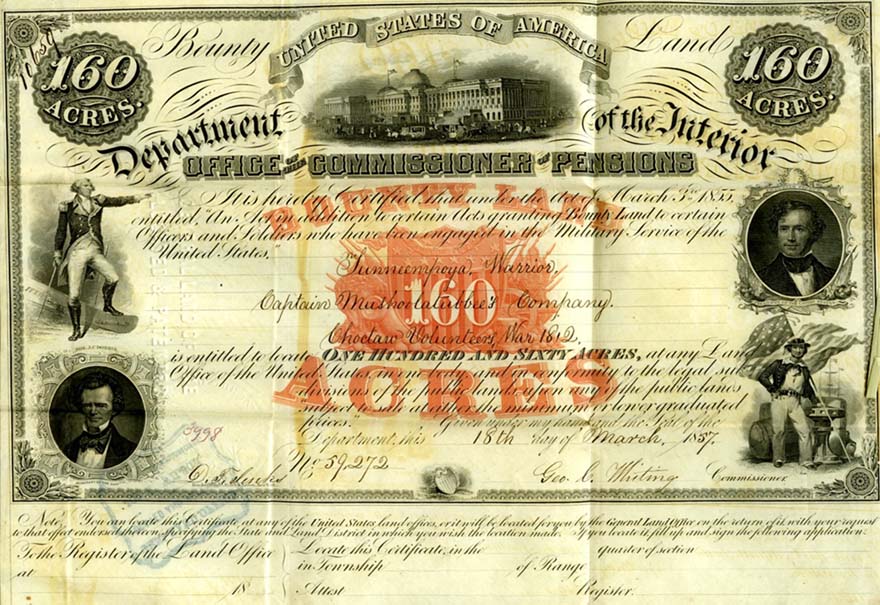 10659
160 ACRES.
Bounty
UNITED STATES OF AMERICA
Land
160 ACRES.
Department of the Interior
OFFICE OF THE COMMISSIONER OF PENSIONS
BOUNTY LAND
It is hereby Certified that under the Act of March 3rd 1855,
entitled, "An Act in addition to certain Acts granting Bounty Land to certain
Officers and Soldiers who have been engaged in the Military Service of the
United States,"
Warrior,
160
Captain Mushoolatubbee's Company,
Choctaw Volunteers, War 1812,
is entitled to locate ONE HUNDRED AND SIXTY ACRES, at any Land
Office of the United States, in one body and in conformity to the legal sub
divisions of the public lands, upon any of the public lands
ACRES
subject to sale at either the minimum or lower graduated
prices." Given under my hand and the Seal of the
3998
Department, this 18th day of March, 1857.
No 59,272
Geo. C. Whiting Commissioner
Note. You can locate this Certificate at any of the United States land offices, or it will be located for you by the General Land Office on the return of it, with your request
to that effect endorsed thereon, specifying the State and Land District in which you wish the location made. If you locate it, fill up and sign the following application:
To the Register of the Land Office Locate this Certificate, in the quarter of section
at in Township of Range
18 Attest Register.